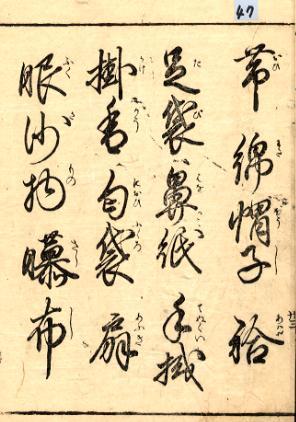 47
帯綿帽子袷
足袋鼻紙手拭
掛香匂袋扇
服沙物曝布